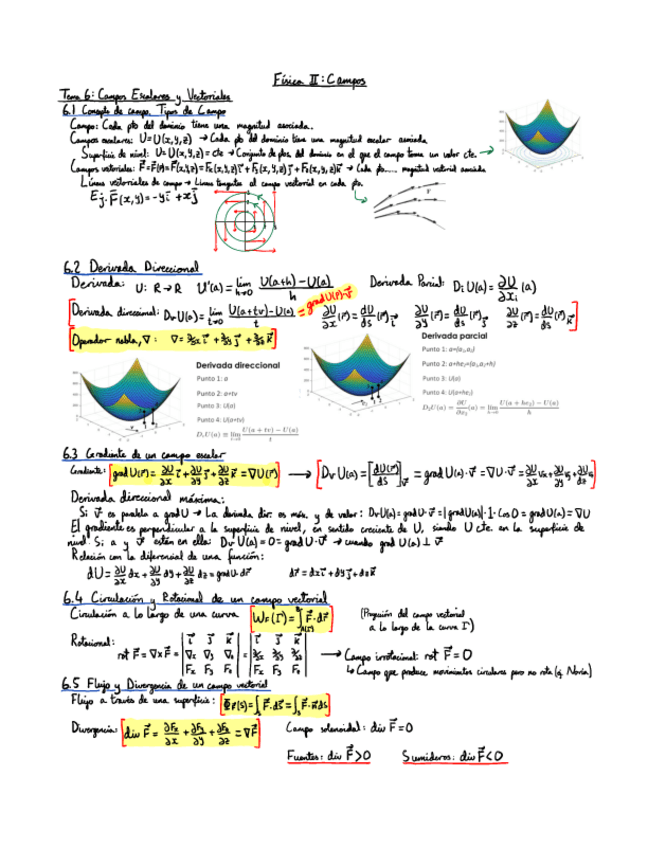 Física II: Campos
Tema 6: Campos Escalares y Vectoriales
6.1 Concepto de campo. Tipos de Campo
Campo: Cada pto del dominio tiene una magnitud asociada.
Campos escalares: U=U(x,y,z) → Cada pto del dominio tiene una magnitud escalar asociada
Superficie de nivel: U=U(x,y,z)=cte → Conjunto de ptos. del dominio en el que el campo toma un valor cte.
Campos vectoriales: F⃗=F⃗(r⃗)=F⃗(x,y,z)=Fx(x,y,z)i⃗+Fy(x,y,z)j⃗+Fz(x,y,z)k⃗ → Cada pto.... magnitud vectorial asociada
Líneas vectoriales de campo → Líneas tangentes al campo vectorial en cada pto.
Ej. F⃗(x,y)=-yi⃗+xj⃗
6.2 Derivada Direccional
Derivada: U: R→R U'(a)=lim h→0 (U(a+h)-U(a))/h Derivada Parcial: DiU(a)=∂U/∂xi (a)
Derivada direccional: DvU(a)=lim t→0 (U(a+tv)-U(a))/t = grad U(r)·v⃗ ∂U/∂x(r⃗)=dU/ds(r⃗)i⃗ ∂U/∂y(r⃗)=dU/ds(r⃗)j⃗ ∂U/∂z(r⃗)=dU/ds(r⃗)k⃗
Operador nabla, ∇: ∇=∂/∂x i⃗+∂/∂y j⃗+∂/∂z k⃗
Derivada direccional
Punto 1: a
Punto 2: a+tv
Punto 3: U(a)
Punto 4: U(a+tv)
D₁U(a) ≡ lim t→0 (U(a+tv)-U(a))/t
Derivada parcial
Punto 1: a=(a₁,a₂)
Punto 2: a+he₂=(a₁,a₂+h)
Punto 3: U(a)
Punto 4: U(a+he₂)
D₂U(a)=∂U/∂x₂(a)=lim h→0 (U(a+he₂)-U(a))/h
6.3 Gradiente de un campo escalar
Gradiente: grad U(r⃗)=∂U/∂x i⃗+∂U/∂y j⃗+∂U/∂z k⃗=∇U(r⃗) → DvU(a)=[dU(r⃗)/ds]v⃗=grad U(a)·v⃗=∇U·v⃗=∂U/∂x vx+∂U/∂y vy+∂U/∂z vz
Derivada direccional máxima:
Si v⃗ es paralela a grad U → La derivada dir. es máx. y de valor: DvU(a)=grad U·v⃗=|grad U(a)|·1·Cos 0=grad U(a)=∇U
El gradiente es perpendicular a la superficie de nivel, en sentido creciente de U, siendo U cte. en la superficie de
nivel. Si a y v⃗ están en ella: DvU(a)=0=grad U·v⃗ → cuando grad U(a)⊥v⃗
Relación con la diferencial de una función:
dU=∂U/∂x dx+∂U/∂y dy+∂U/∂z dz=grad U·dr⃗ dr⃗=dxi⃗+dyj⃗+dzk⃗
6.4 Circulación y Rotacional de un campo vectorial
Circulación a lo largo de una curva WF(Γ)=∫F⃗·dr⃗ (Proyección del campo vectorial
a lo largo de la curva Γ)
Rotacional: rot F⃗=∇×F⃗=|i⃗ j⃗ k⃗; ∇x ∇y ∇z; Fx Fy Fz|=|i⃗ j⃗ k⃗; ∂/∂x ∂/∂y ∂/∂z; Fx Fy Fz| → Campo irrotacional: rot F⃗=0
↳ Campo que produce movimientos circulares pero no rota (ej. Noria)
6.5 Flujo y Divergencia de un campo vectorial
Flujo a través de una superficie: ΦF(S)=∫s F⃗·ds⃗=∫s F⃗·n⃗ds
Divergencia: div F⃗=∂Fx/∂x+∂Fy/∂y+∂Fz/∂z=∇F⃗ Campo solenoidal: div F⃗=0
Fuentes: div F⃗>0 Sumideros: div F⃗<0